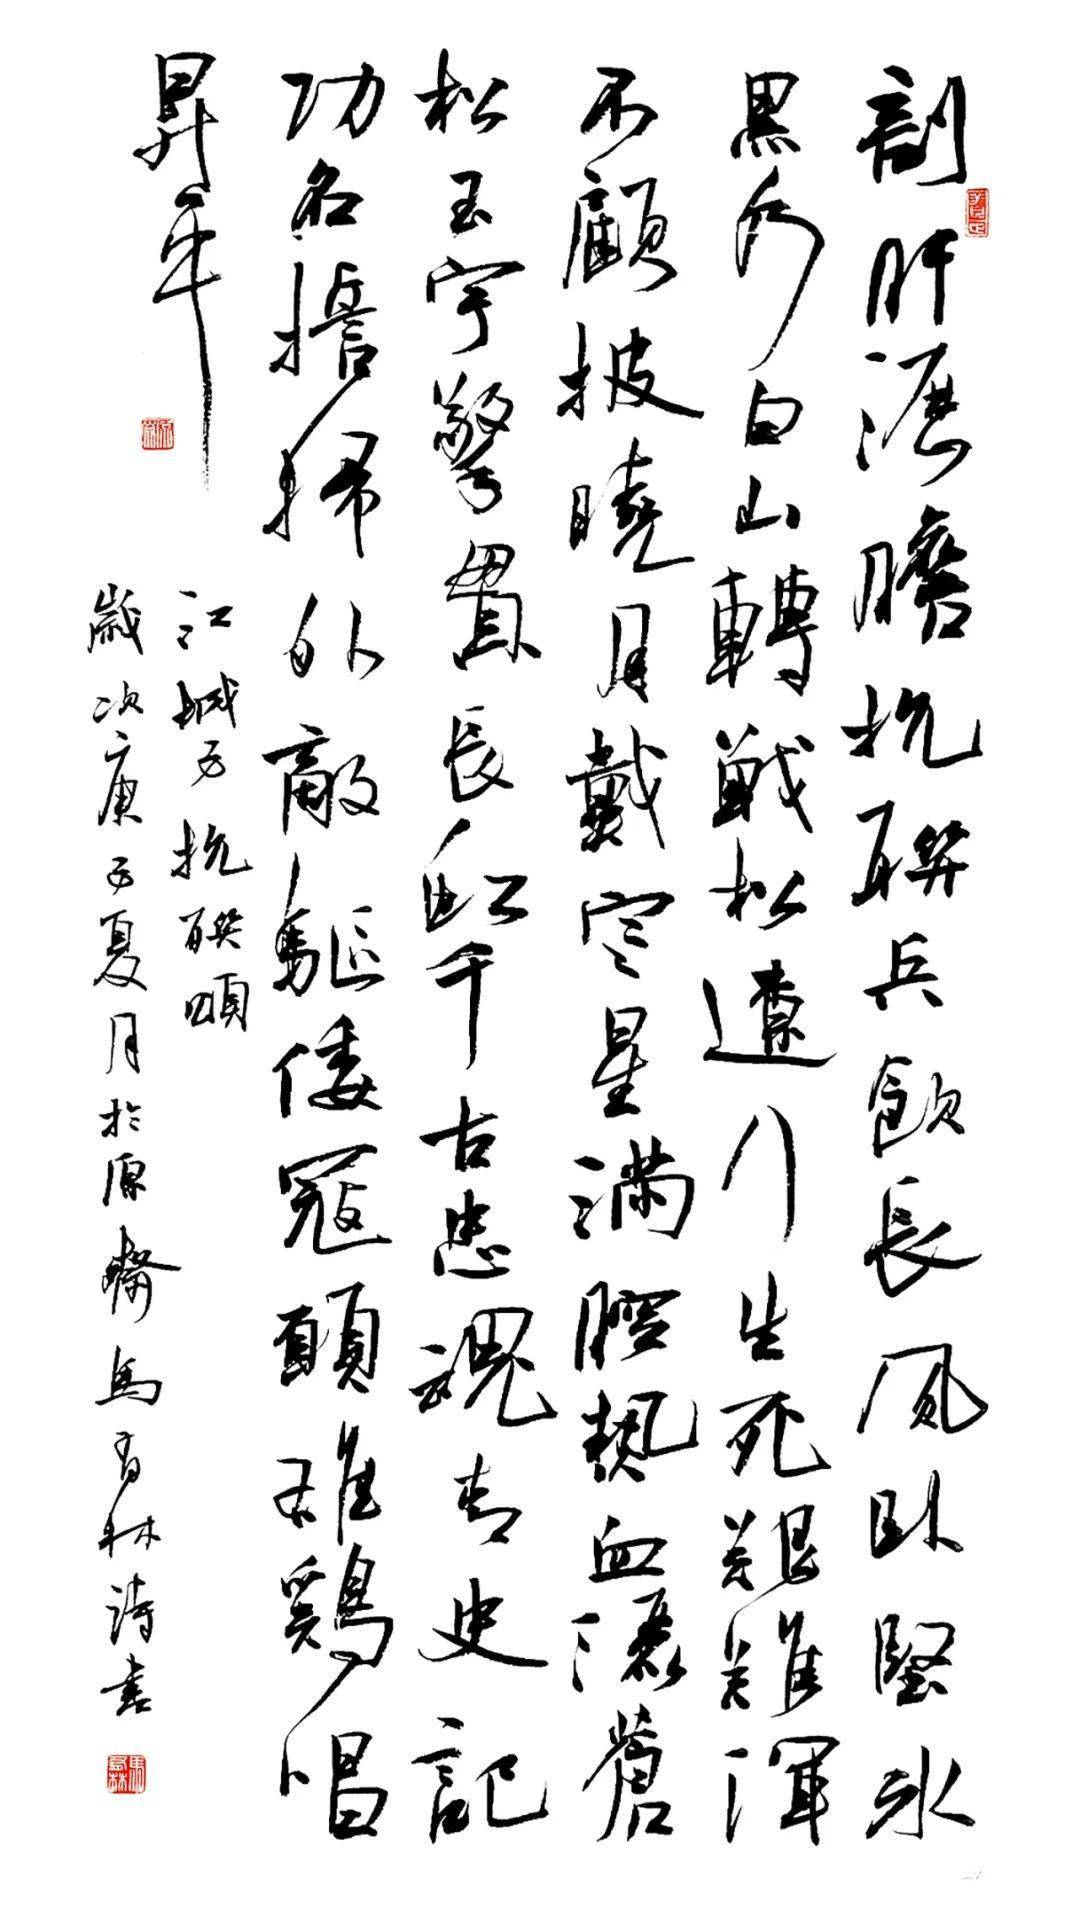 剖肝瀝膽抗聯兵飲長風卧堅冰
黑水白山轉戰松遼行生死艱難渾
不顧披曉月戴寒星滿腔熱血灑蒼
松玉宇擎貫長虹千古忠魂青史記
功名擔掃外敵驅倭寇頭雄鷄唱
昇平
江城子抗聯頌
歲次庚子夏月於原齋馬有林詩書